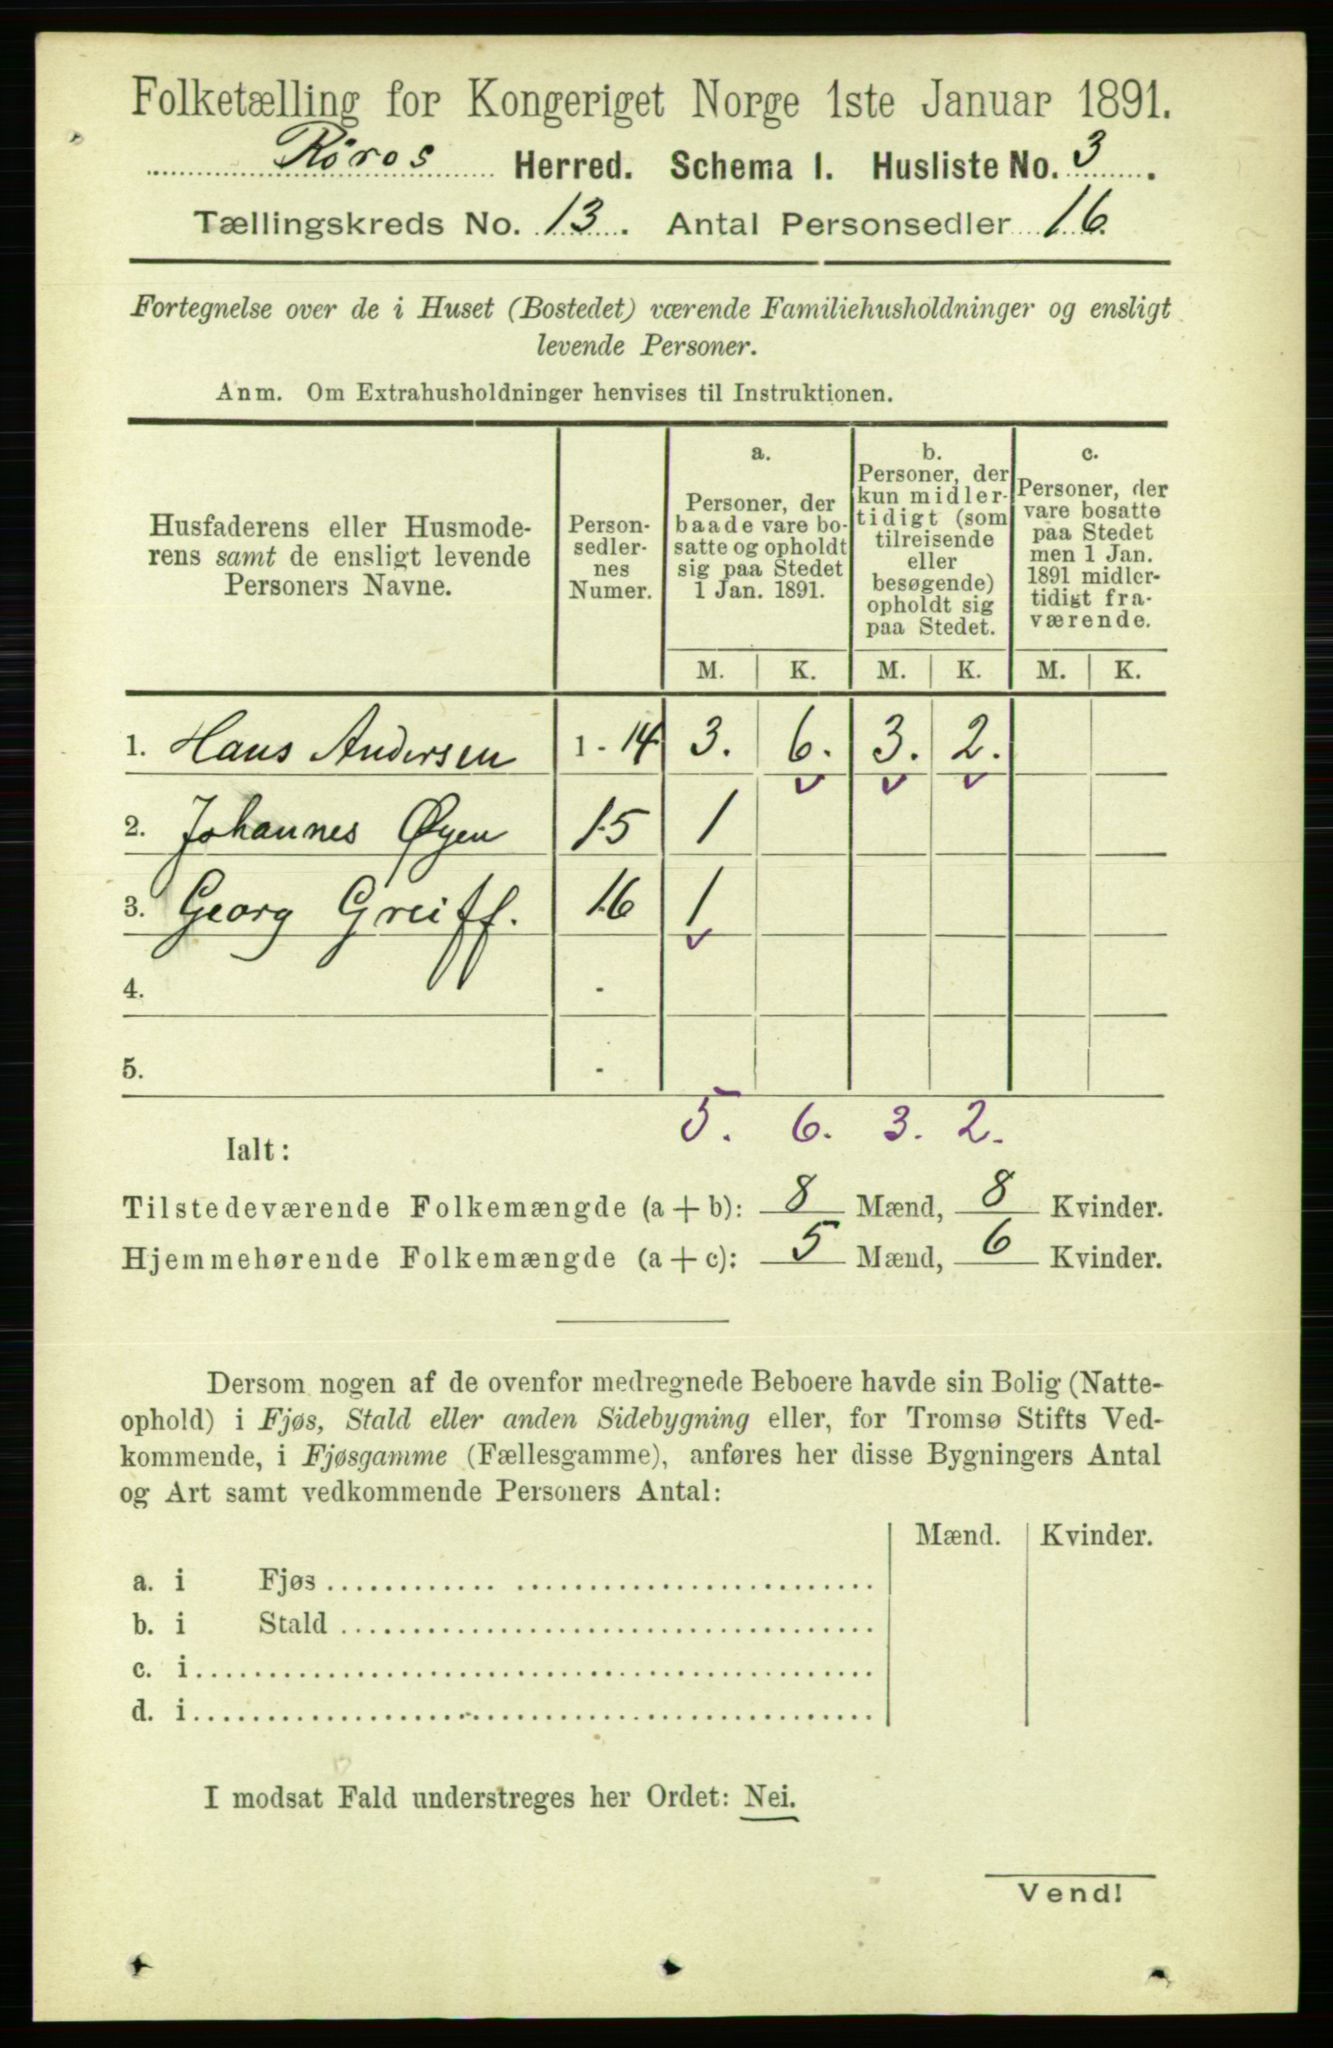 Folketælling for Kongeriget Norge 1ste Januar 1891.
Röros Herred. Schema 1. Husliste No. 3.
Tællingskreds No. 13. Antal Personsedler 16.
Fortegnelse over de i Huset (Bostedet) værende Familiehusholdninger og ensligt
levende Personer.
Anm. Om Extrahusholdninger henvises til Instruktionen.
Husfaderens eller Husmode-
rens samt de ensligt levende
Personers Navne.
Person-
sedler-
nes
Numer.
a.
Personer, der
baade vare bo-
satte og opholdt
sig paa Stedet
1 Jan. 1891.
b.
Personer, der
kun midler-
tidigt (som
tilreisende
eller
besøgende)
opholdt sig
paa Stedet.
c.
Personer, der
vare bosatte
paa Stedet
men 1 Jan.
1891 midler-
tidigt fra-
værende.
M. K. M. K. M. K.
1. Hans Andersen 1 - 14 3. 6. 3. 2.
2. Johannes Øyen 15 1
3. Georg Greiff. 16 1
4. -
5. -
5. 6. 3. 2.
Ialt:
Tilstedeværende Folkemængde (a + b): 8 Mænd, 8 Kvinder.
Hjemmehørende Folkemængde (a + c): 5 Mænd, 6 Kvinder.
Dersom nogen af de ovenfor medregnede Beboere havde sin Bolig (Natte-
ophold) i Fjøs, Stald eller anden Sidebygning eller, for Tromsø Stifts Ved-
kommende, i Fjøsgamme (Fællesgamme), anføres her disse Bygningers Antal
og Art samt vedkommende Personers Antal:
Mænd. Kvinder.
a. i Fjøs
b. i Stald
c. i
d. i
I modsat Fald understreges her Ordet: Nei.
Vend!